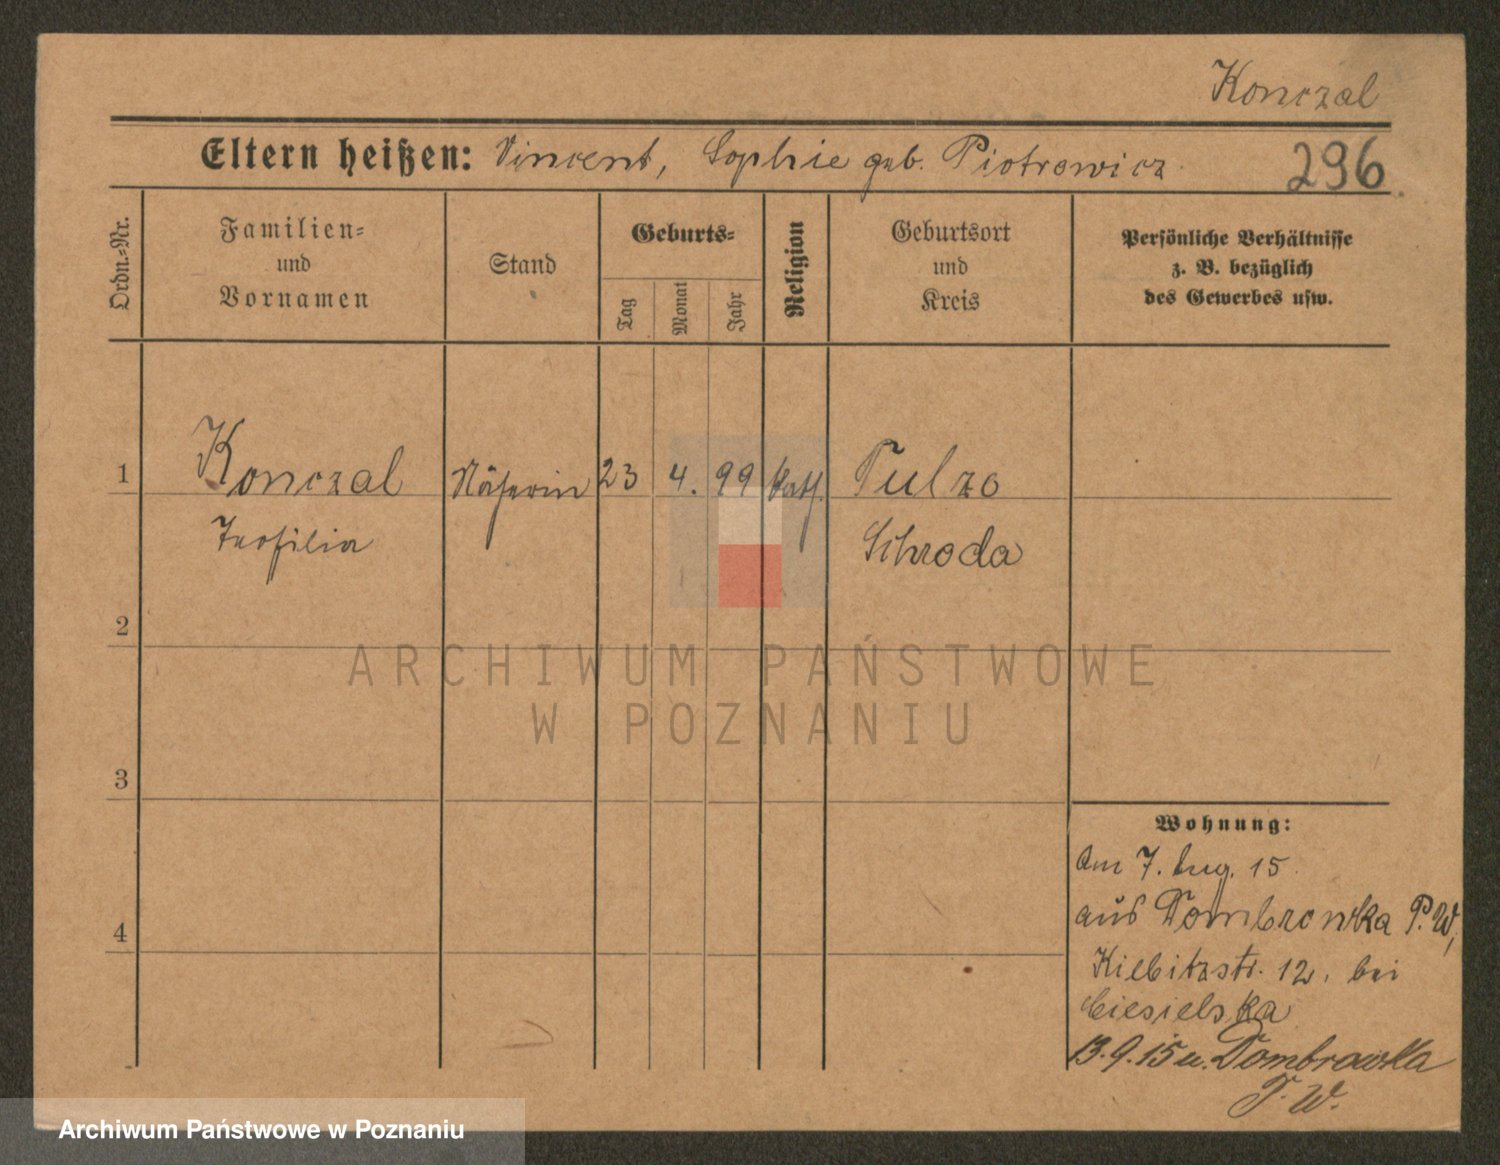 Konczal
Eltern heißen: Vincent, Sophie geb. Piotrowicz
296
Ordn.-Nr.
Familien-
und
Vornamen
Stand
Geburts-
Tag
Monat
Jahr
Religion
Geburtsort
und
Kreis
Persönliche Verhältnisse
z. B. bezüglich
des Gewerbes usw.
1 Konczal Näherin 23 4. 99 kath. Tulzo
Teofilia Schroda
2
ARCHIWUM PAŃSTWOWE
W POZNANIU
3
Wohnung:
Am 7. Aug. 15
aus Dombrowka P. W,
4
Kiebitzstr. 12, bei
Ciesielska
13.9.15 n. Dombrowka
P. W.
Archiwum Państwowe w Poznaniu